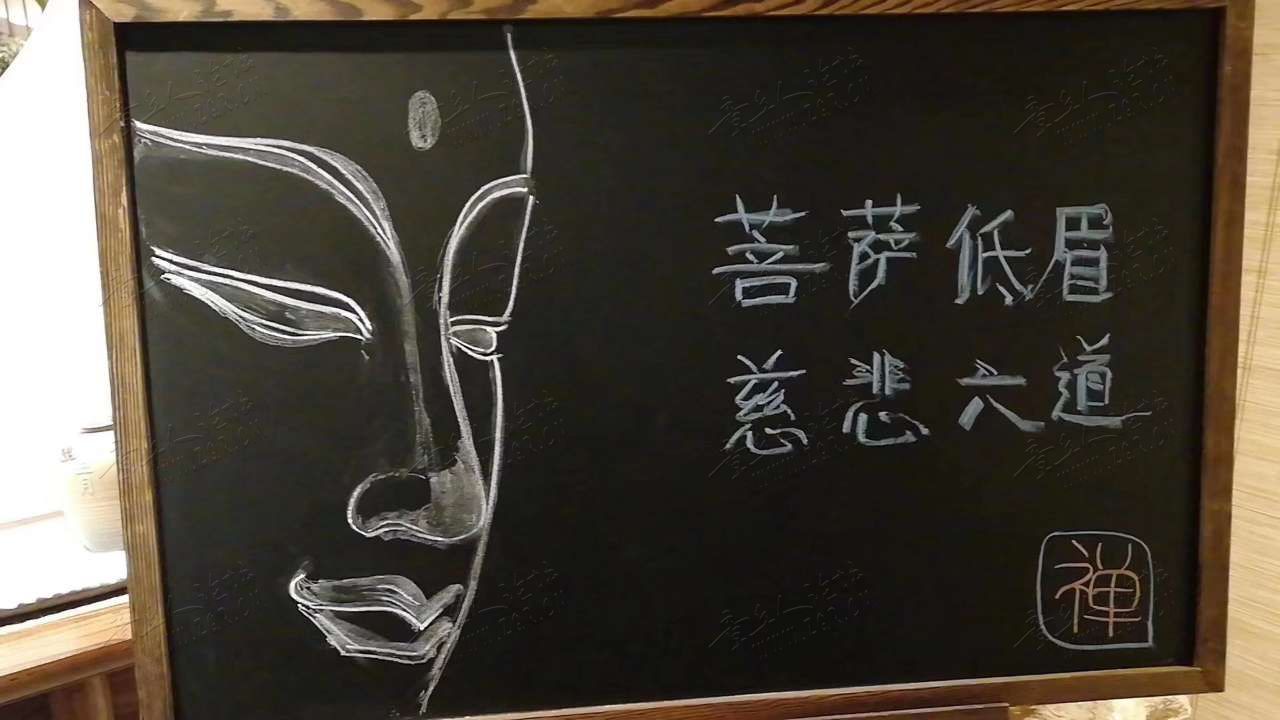 菩萨低眉
慈悲六道
禅